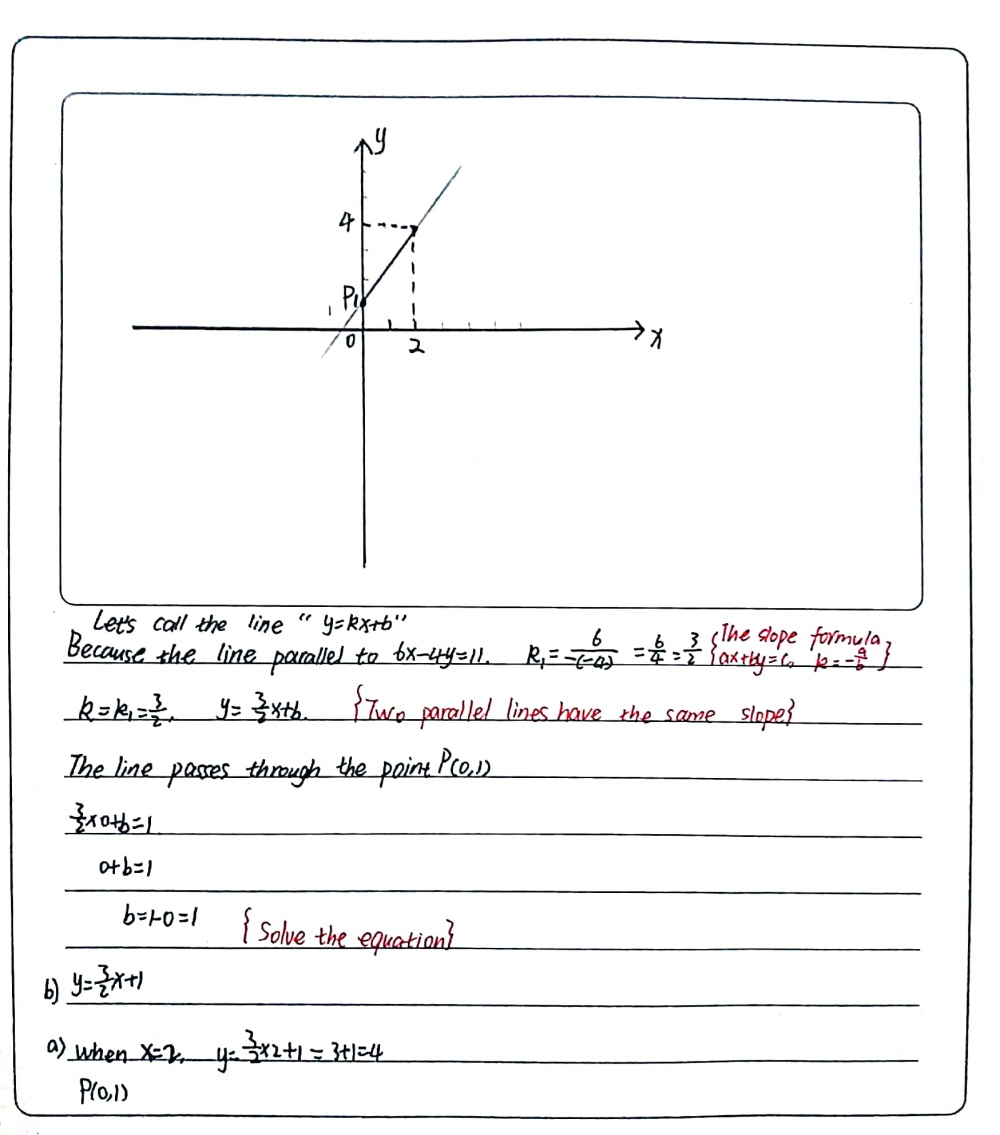 y
4
P1
0
2
x
Let's call the line “y=kx+b”
Because the line parallel to 6x-4y=11. k₁=-6/-(-4) =6/4=3/2 {The slope formula
ax+by=c, k=-a/b}
k=k₁=3/2, y=3/2x+b. {Two parallel lines have the same slope}
The line passes through the point P(0,1)
3/2×0+b=1
0+b=1
b=1-0=1 {Solve the equation}
b) y=3/2x+1
a) when x=2, y=3/2×2+1=3+1=4
P(0,1)